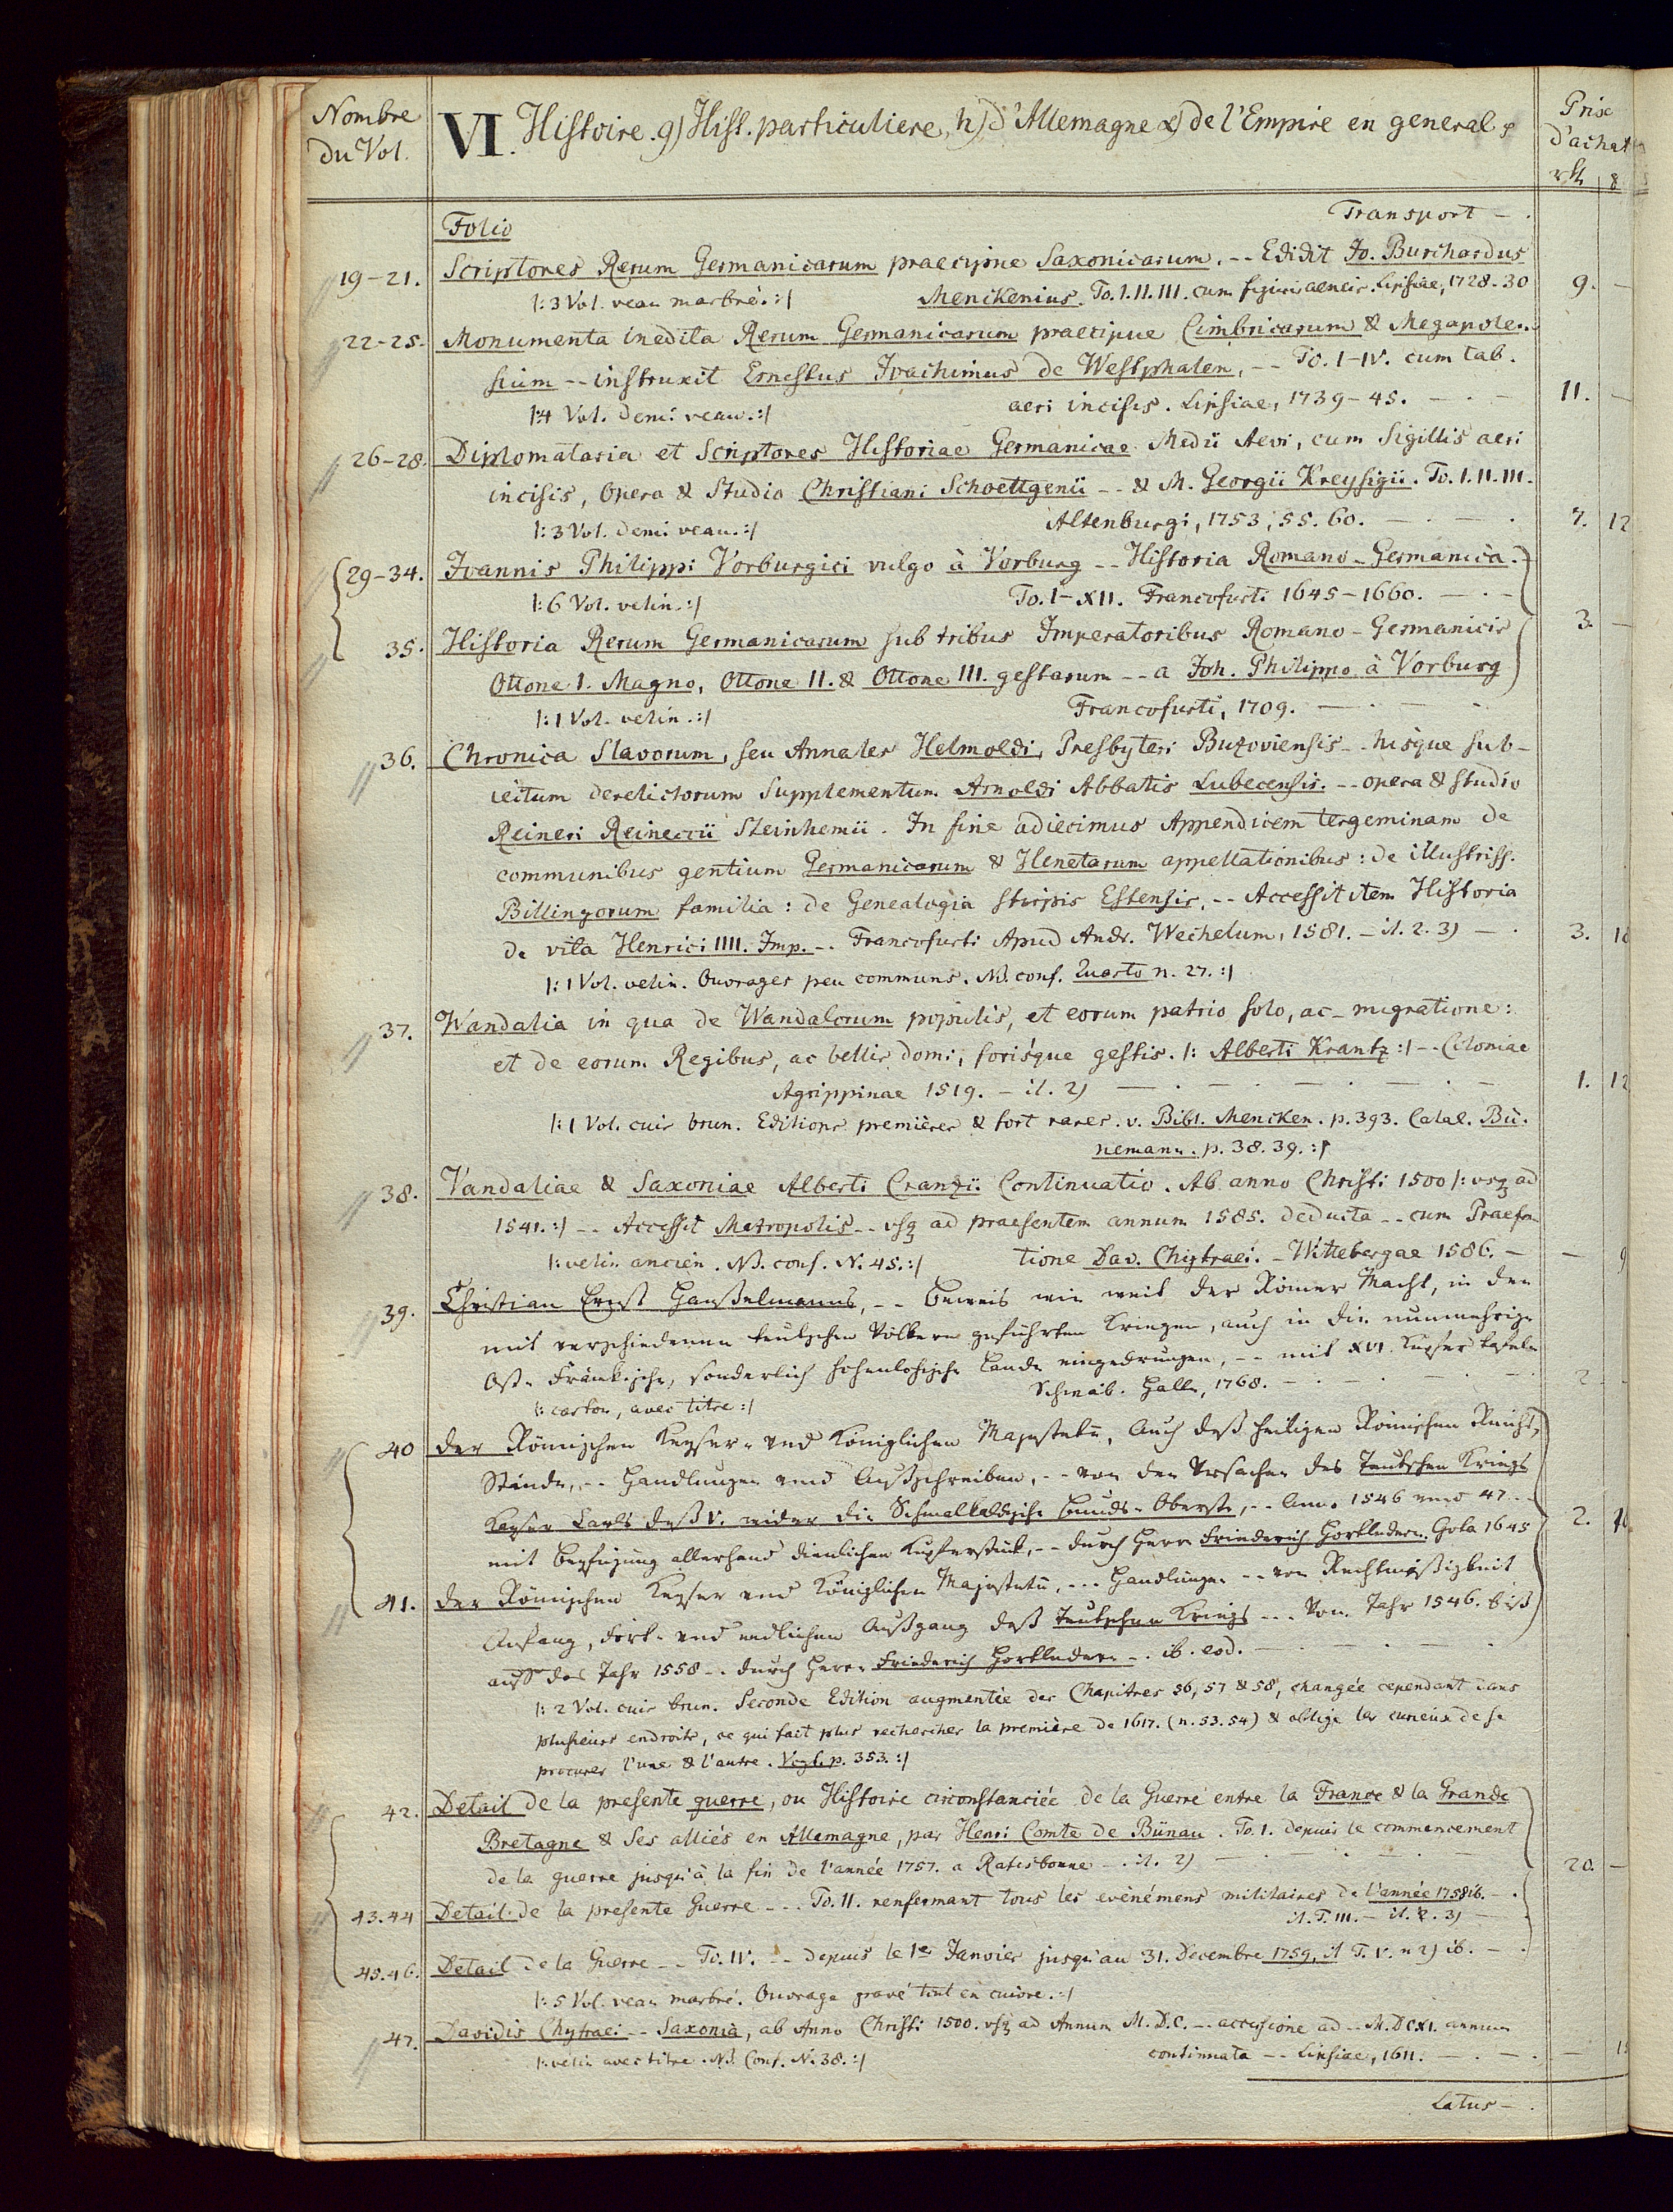 Nombre du Vol.
VI. Histoire. g) Hist. particuliere, h) d'Allemagne α) de l'Empire en general
Prix d'achat
Folio
Transport – .
19-21. Scriptores Rerum Germanicarum praecipue Saxonicarum. -- Edidit Jo. Burchardus
|: 3 Vol. veau marbré. :| Menckenius. To. I. II. III. cum figuris aeneis. Lipsiae, 1728-30 9. –
22-25. Monumenta inedita Rerum Germanicarum praecipue Cimbricarum & Megapolen-
sium -- instruxit Ernestus Joachimus de Westphalen, -- To. I-IV. cum tab.
|: 4 Vol. demi veau. :| aeri incisis. Lipsiae, 1739-45. – . – 11. –
26-28. Diplomataria et Scriptores Historiae Germanicae Medii Aevi, cum Sigillis aeri
incisis, Opera & Studio Christiani Schoettgenii -- & M. Georgii Kreysigii. To. I. II. III.
|: 3 Vol. demi veau. :| Altenburgi, 1753, 55. 60. – . – . 7. 12
29-34. Joannis Philippi Vorburgici vulgo à Vorburg -- Historia Romano-Germanica.
|: 6 Vol. velin. :| To. I-XII. Francofurti 1645-1660. – . –
35. Historia Rerum Germanicarum sub tribus Imperatoribus Romano-Germanicis 3. –
Ottone I. Magno, Ottone II. & Ottone III. gestarum -- a Joh. Philippo à Vorburg
|: 1 Vol. velin. :| Francofurti, 1709. – . – .
36. Chronica Slavorum, seu Annales Helmoldi, Presbyteri Buzoviensis -- hisque sub-
iectum derelictorum Supplementum Arnoldi Abbatis Lubecensis. -- opera & studio
Reineri Reineccii Steinhemii. In fine adiecimus Appendicem tergeminam de
communibus gentium Germanicarum & Henetarum appellationibus: de illustriss.
Billingorum familia: de Genealogia stirpis Estensis, -- Accessit item Historia
de vita Henrici IIII. Imp. -- Francofurti Apud Andr. Wechelum, 1581. – il. 2. 3) – . 3.
|: 1 Vol. velin. Ouvrages peu communs. NB. conf. Quarto n. 27. :|
37. Wandalia in qua de Wandalorum populis, et eorum patrio solo, ac migratione:
et de eorum Regibus, ac bellis domi, forisque gestis. |: Alberti Krantz :| -- Coloniae
Agrippinae 1519. – il. 2) – . – . – . – . – 1. 12
|: 1 Vol. cuir brun. Editions premières & fort rares. v. Bibl. Mencken. p. 393. Catal. Bü-
nemann. p. 38. 39. :|
38. Vandaliae & Saxoniae Alberti Cranzii Continuatio. Ab anno Christi 1500 |: usq ad
1541. :| -- Accessit Metropolis -- usq ad praesentem annum 1585. deducta -- cum Praefa-
|: velin ancien. NB. conf. N. 45. :| tione Dav. Chytraei. – Wittebergae 1586. – – 9
39. Christian Ernst Hanßelmanns, -- Beweis wie weit der Römer Macht, in den
mit verschiedenen teutschen Völkern geführten Kriegen, auch in die nunmehrige
Ost-Fränkische, sonderlich hohenlohische Lande eingedrungen, -- mit XVI. Kupfer tafeln
|: carton, avec titre :| Schwäb. Hall, 1768. – . – . – . 2
40 Der Römischen Keyser- und Königlichen Majestete, Auch deß heiligen Römischen Reichs,
Stände, -- Handlungen und Außschreiben, -- von den Ursachen des Teutschen Kriegs
Keyser Carls deß V. wider die Schmalkaldische Bunds-Oberste, -- Anno 1546 und 47. --
mit Beyfügung allerhand dienlichen Kupferstück, -- durch Herr Friederich Hortledern. Gota 1645 2.
41. Der Römischen Keyser und Königlichen Majestete, --- Handlungen -- von Rechtmäßigkeit
Anfang, Fort- und endlichen Außgang deß Teutschen Kriegs --- Vom Jahr 1546. biß
auf das Jahr 1558 -- durch Herr Friederich Hortledern -- ib. eod. – . – . – .
|: 2 Vol. cuir brun. Seconde Edition augmentée des Chapitres 56, 57 & 58, changée cependant dans
plusieurs endroits, ce qui fait plus rechercher la première de 1617. (n. 53. 54) & oblige les curieux de se
procurer l'une & l'autre. Vogt. p. 353. :|
42. Detail de la presente guerre, ou Histoire circonstanciée de la Guerre entre la France & la Grande
Bretagne & Ses alliés en Allemagne, par Henri Comte de Bünau. To. I. depuis le commencement
de la guerre jusqu'à la fin de l'année 1757. a Ratisbonne – . il. 2) – . – . – . 20. –
43. 44 Detail de la presente Guerre --- To. II. renfermant tous les evènémens militaires de l'année 1758 ib. – .
il. T. III. – il. 2. 3) –
45. 46. Detail de la Guerre -- To. IV. -- depuis le 1er Janvier jusqu'au 31. Decembre 1759, il T. V. n 2) ib. – .
|: 5 Vol. veau marbré. Ouvrage gravé tout en cuivre. :|
47. Davidis Chytraei -- Saxonia, ab Anno Christi 1500. usq ad Annum M. D. C. -- accessione ad -- M. DCXI. annum
|: velin avec titre. NB. Conf. N. 38. :| continuata -- Lipsiae, 1611. – . – . –
Latus – .